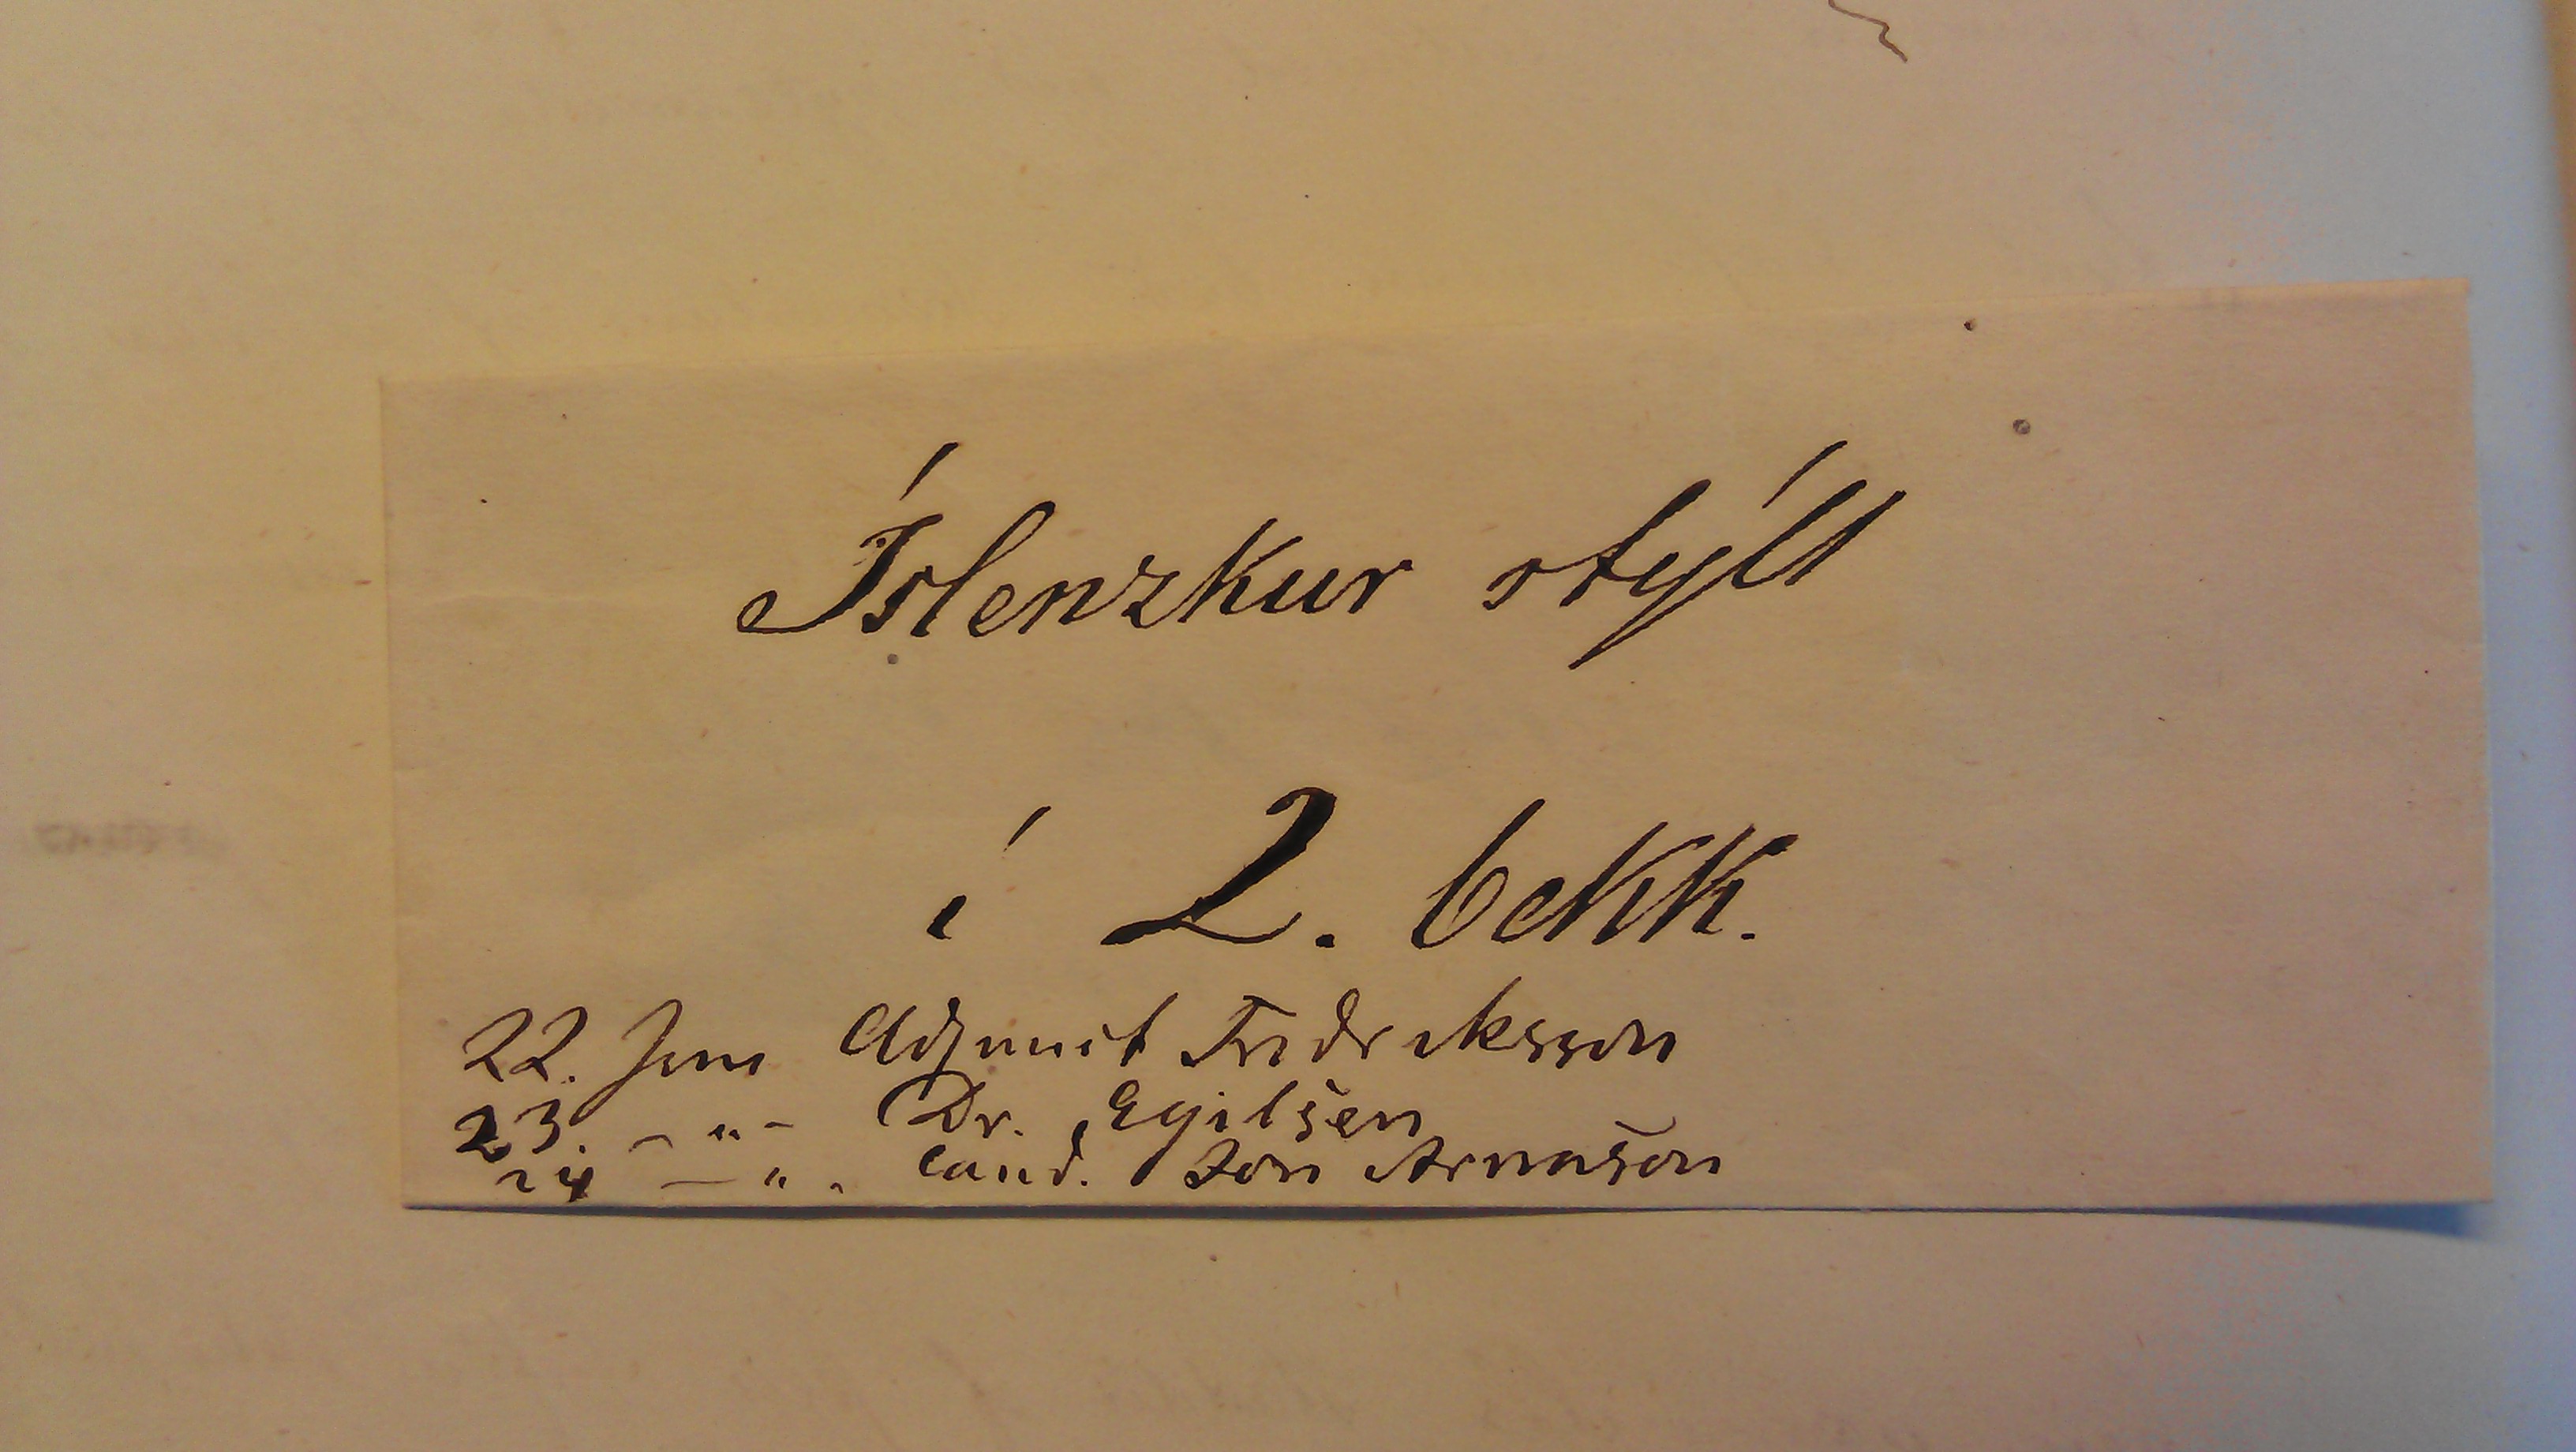 Íslenzkur stýll
í 2. bekk.
22. Juni Adjunct Fridriksson
23. — " — Dr. Egilsen
24 — " - Cand. Jón Arnason